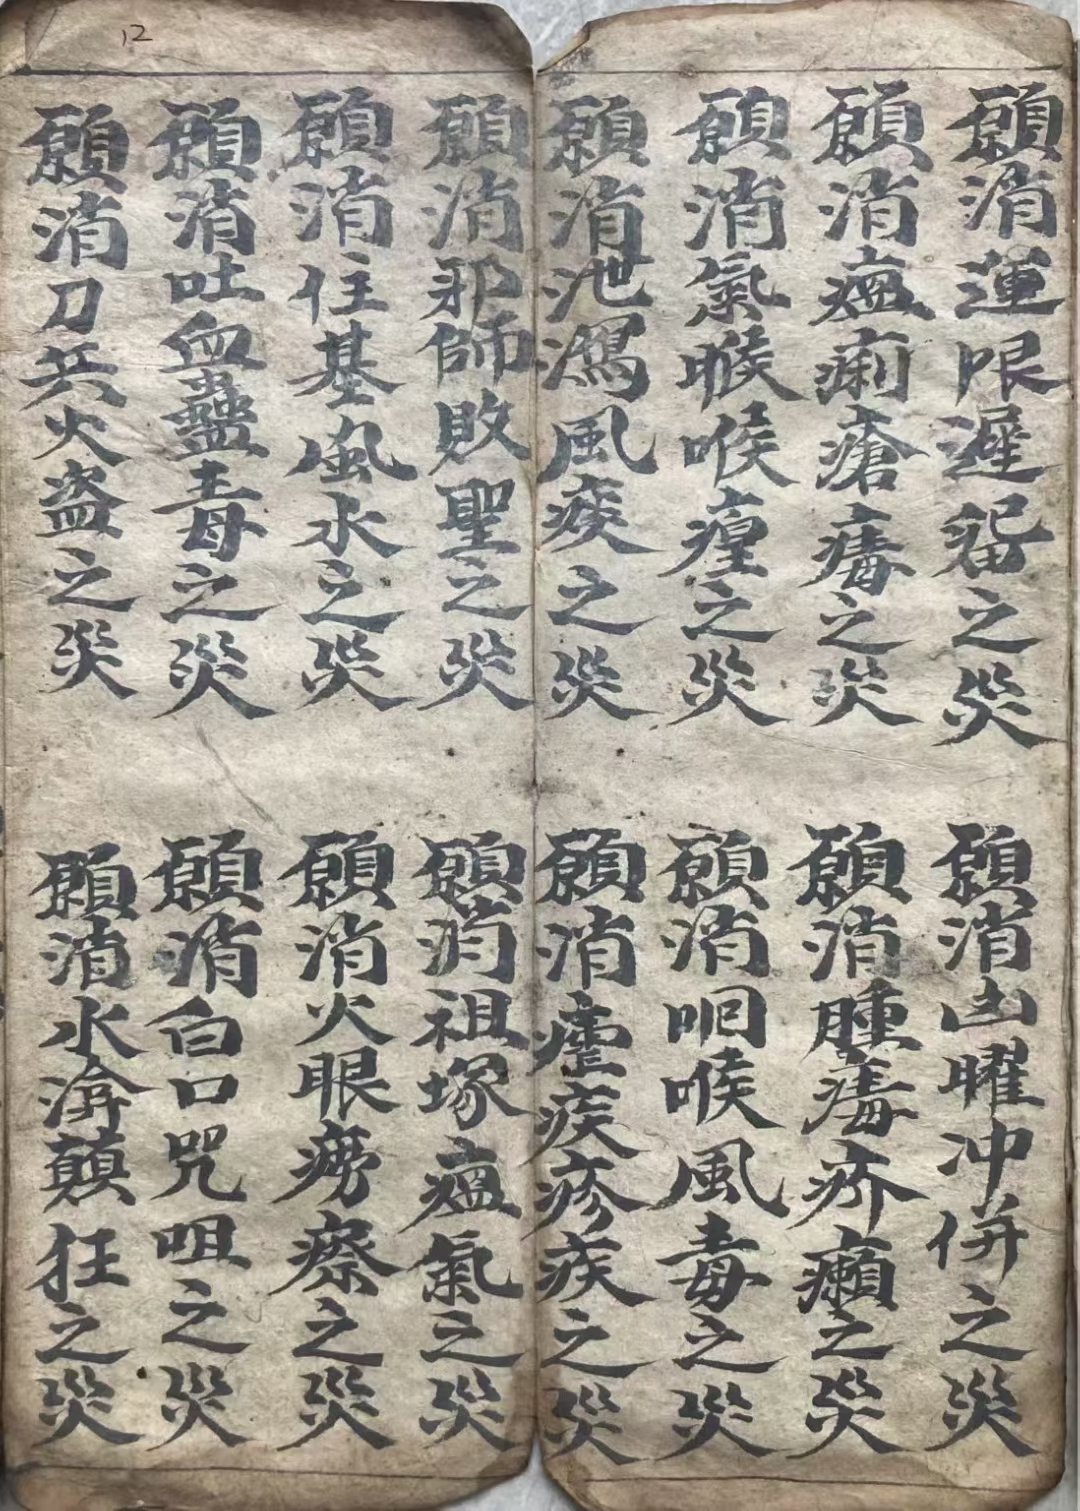 12
願消運限遲留之災
願消凶曜冲併之災
願消瘟痢瘡毒之災
願消腫毒疥癩之災
願消氣喉喉瘇之災
願消咽喉風毒之災
願消泄瀉風疾之災
願消瘧疾疹疾之災
願消邪師敗聖之災
願消祖塚瘟氣之災
願消住基風水之災
願消火眼癆瘵之災
願消吐血蠱毒之災
願消白口咒咀之災
願消刀兵火盗之災
願消水渰顛狂之災